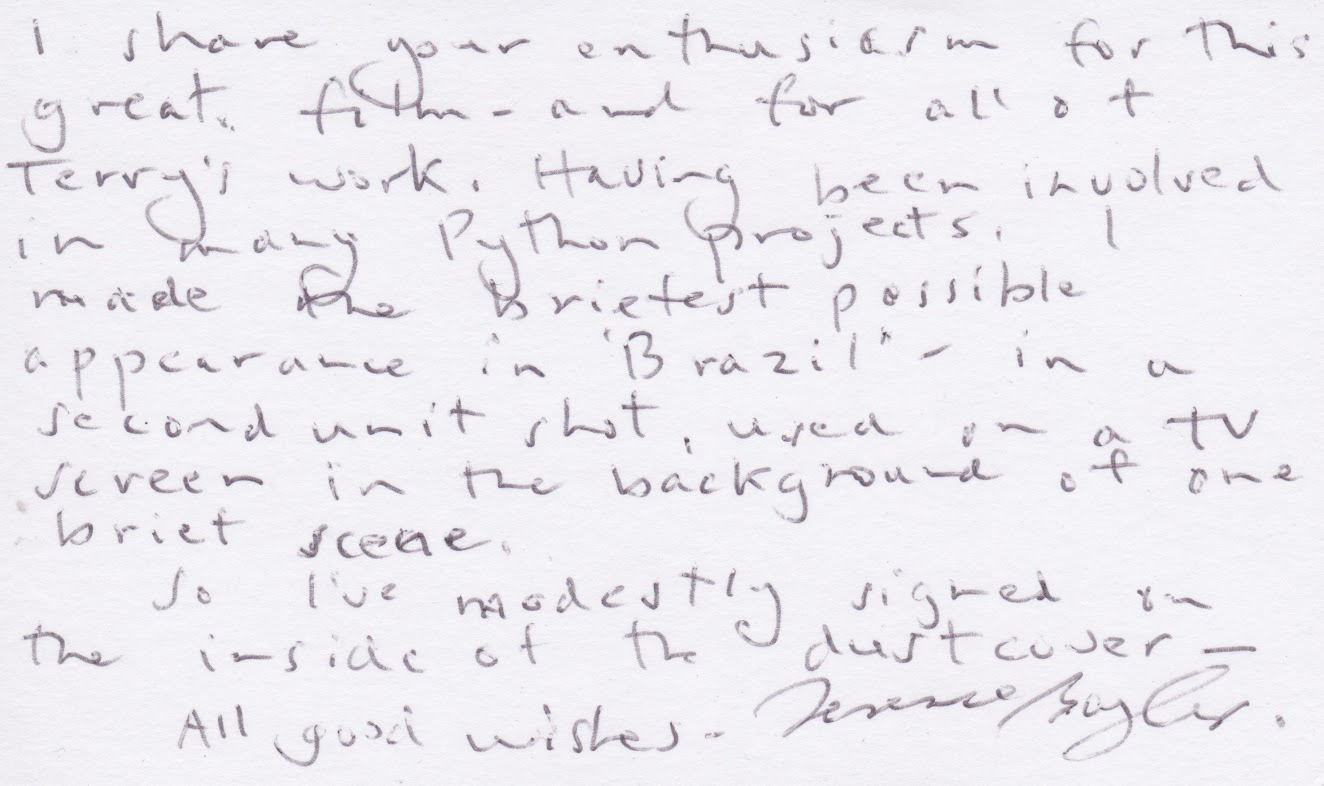 I share your enthusiasm for this
great film - and for all of
Terry's work. Having been involved
in many Python projects. I
made the briefest possible
appearance in 'Brazil' - in a
second unit shot, used on a TV
screen in the background of one
brief scene.
So I've modestly signed on
the inside of the dustcover —
All good wishes - Terence Bayler.